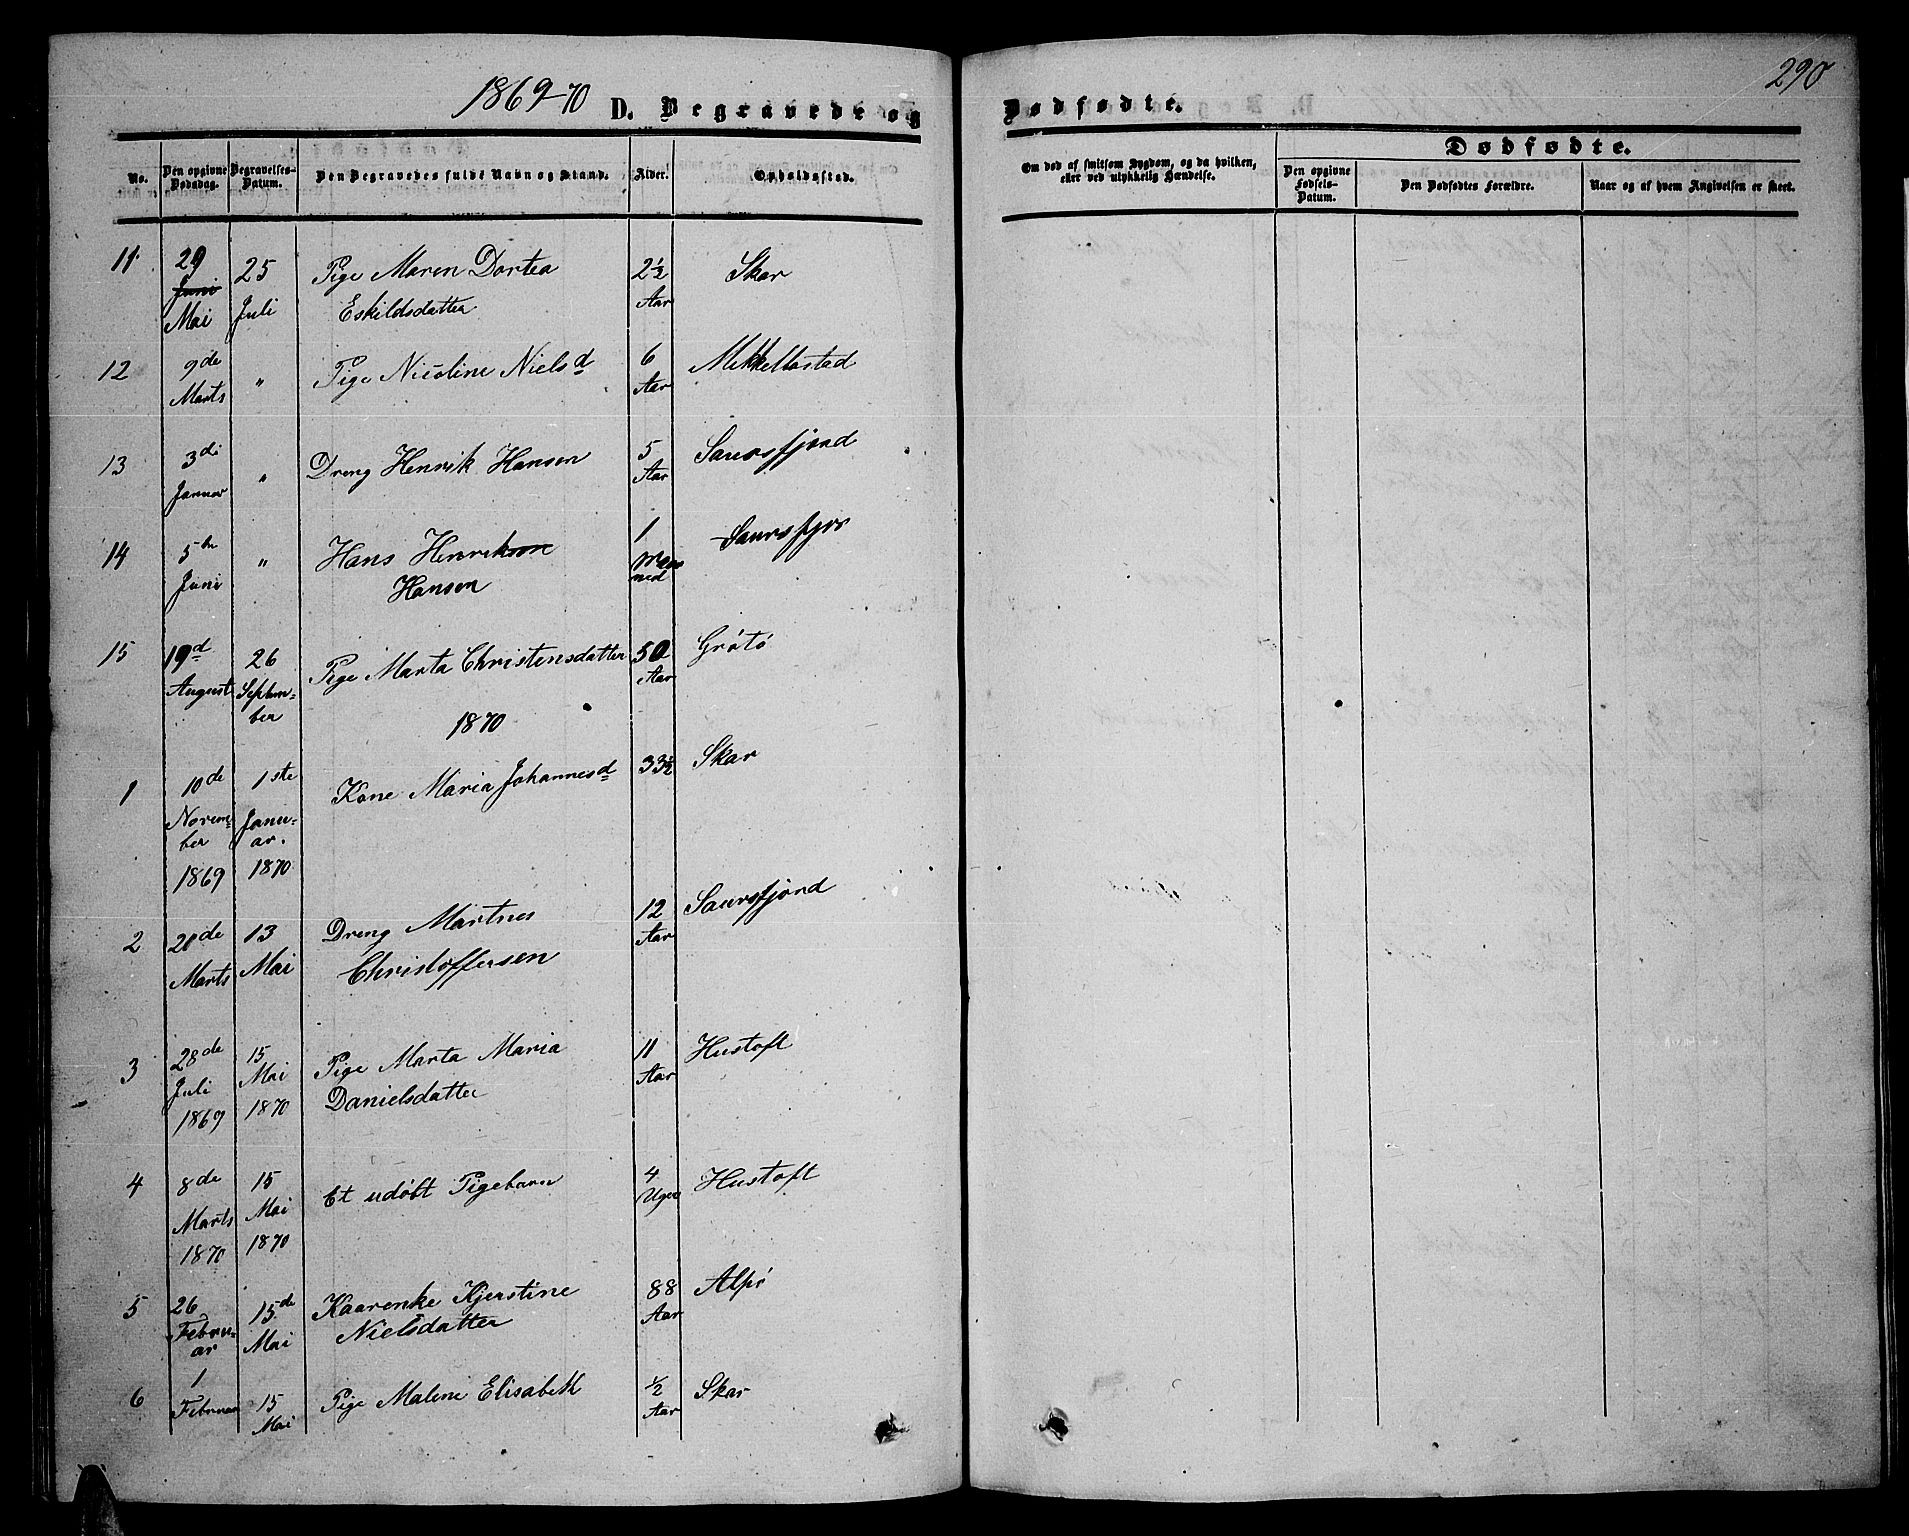 290
1869-70 D. Begravede og Dødfødte.
No. Den opgivne Dødsdag. Begravelses-Datum. Den Begravedes fulde Navn og Stand. Alder. Opholdssted. Om død af smitsom Sygdom, og da hvilken, eller ved ulykkelig Hændelse. Dødfødte. Den opgivne Fødsels-Datum. Den Dødfødtes Forældre. Naar og af hvem Angivelsen er skeet.
11. 29 Juni Mai 25 Juli Pige Maren Dortea Eskildsdatter 2½ Aar Skar
12 9de Marts " Pige Nicoline Nielsd 6 Aar Mikkelbostad
13 3di Januar " Dreng Henrik Hansen 5 Aar Saursfjord
14 5te Juni " Hans Henriksen Hansen 1 Maaned Saursfjor
15 19d August 26 September Pige Marta Christensdatter 50 Aar Grötö
1870
1 10de November 1869 1ste Januar. 1870 Kone Maria Johannesd 33½ Skar
2 21de Marts 13 Mai Dreng Martnes Christoffersen 12 Aar Saursfjord
3 28de Juli 1869 15 Mai 1870 Pige Marta Maria Danielsdatter 11 Aar Hustoft
4 8de Marts 1870 15 Mai 1870 Et udöbt Pigebarn 4 Uger Hustoft
5 26 Februar 15de Mai Kaarenke Kjerstine Nielsdatter 88 Aar Alpö
6 1 Februar 15 Mai Pige Malene Elisabeth ½ Aar Skar